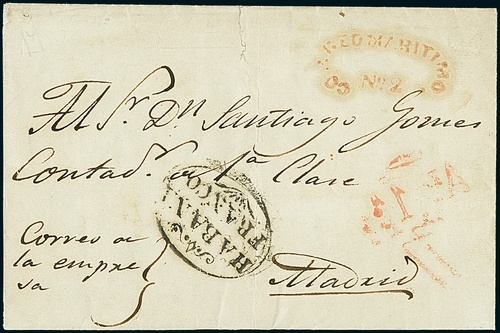 CORREO MARITIMO
No. 2
Al Sr. Dn Santiago Gomes
Contadr. de 1a Clase
HABANA
FRANCO
1
Correo de
la empre
sa
Madrid